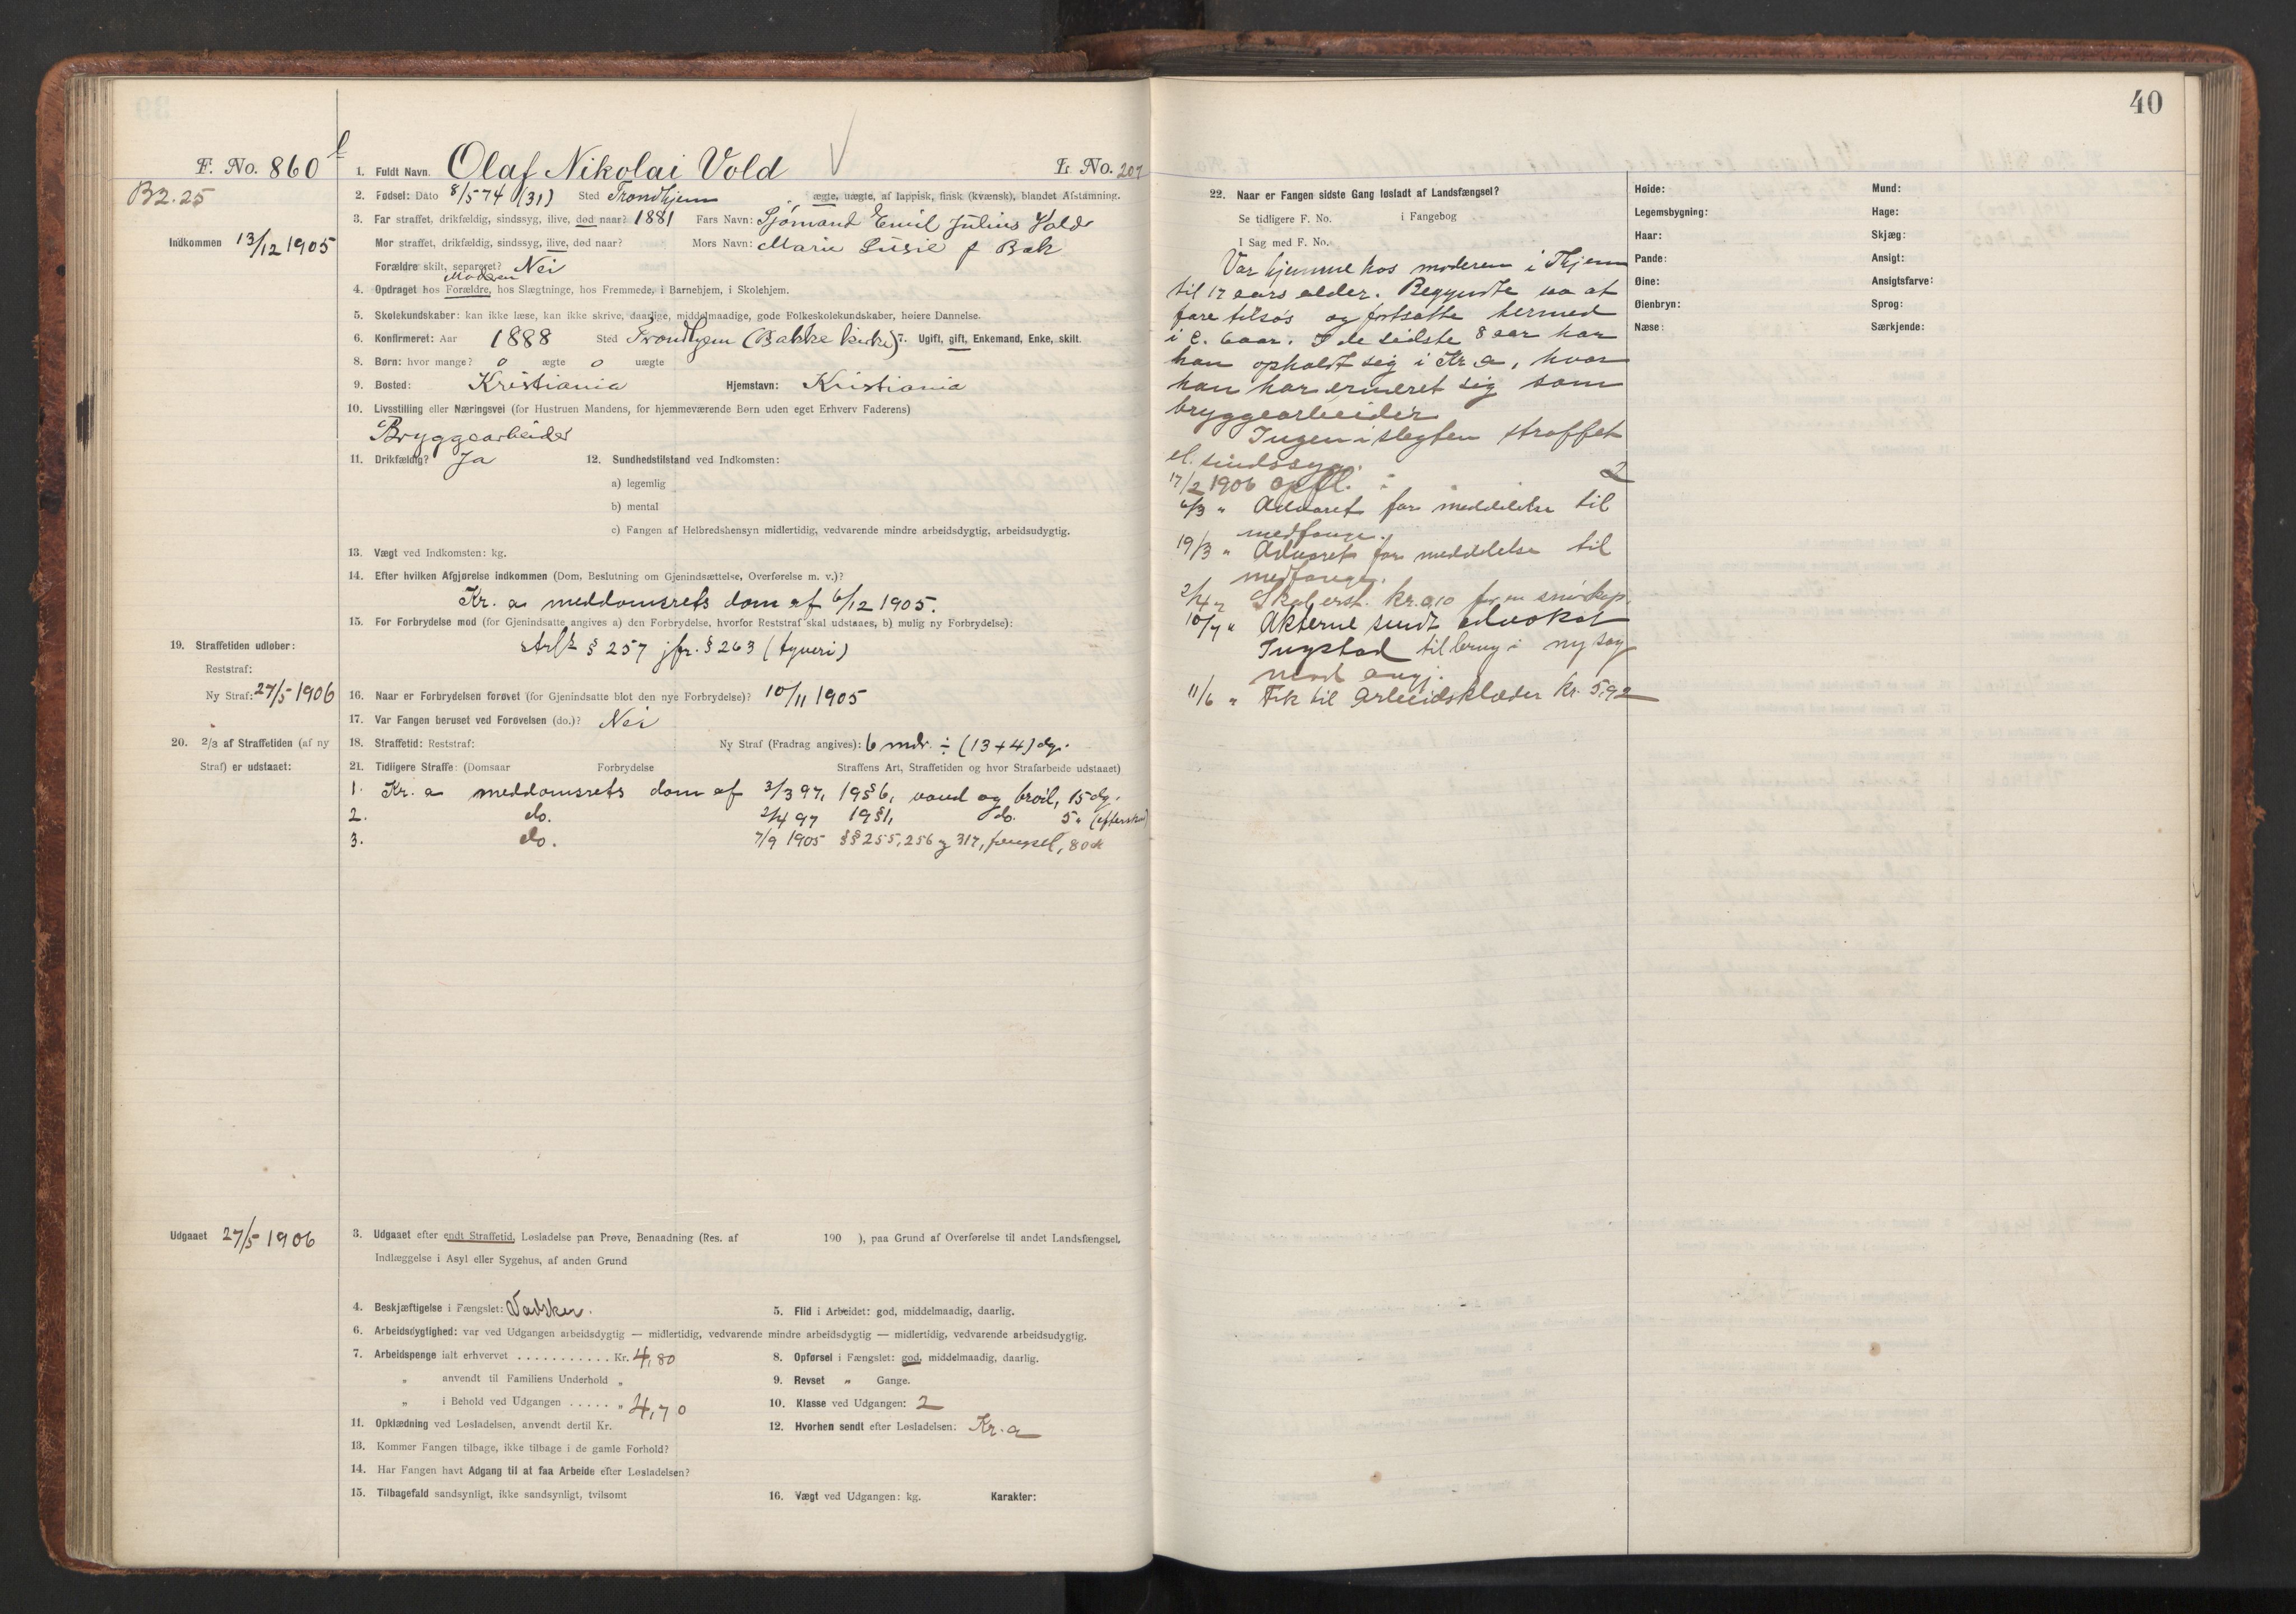 40
F. No. 860
1. Fuldt Navn. Olaf Nikolai Vold
L No. 207
B2. 25
2. Fødsel: Dato 8/5 74 (31) Sted Trondhjem ægte, uægte, af lappisk, finsk (kvænsk), blandet Afstamning.
3. Far straffet, drikfældig, sindssyg, ilive, død naar? 1881 Fars Navn: Sjømand Emil Julius Vold
Indkommen 13/12 1905
Mor straffet, drikfældig, sindssyg, ilive, død naar? Mors Navn: Marie Lusie f Bak
Forældre skilt, separeret? Nei
Moderen
4. Opdraget hos Forældre, hos Slægtninge, hos Fremmede, i Barnehjem, i Skolehjem.
5. Skolekundskaber: kan ikke læse, kan ikke skrive, daarlige, middelmaadige, gode Folkeskolekundskaber, høiere Dannelse.
6. Konfirmeret: Aar 1888 Sted Trondhjem (Bakke kirke) 7. Ugift, gift, Enkemand, Enke, skilt.
8. Børn: hvor mange? 0 ægte 0 uægte
9. Bosted: Kristiania Hjemstavn: Kristiania
10. Livsstilling eller Næringsvei (for Hustruen Mandens, for hjemmeværende Børn uden eget Erhverv Faderens)
Bryggearbeider
11. Drikfældig? Ja 12. Sundhedstilstand ved Indkomsten:
a) legemlig
b) mental
c) Fangen af Helbredshensyn midlertidig, vedvarende mindre arbeidsdygtig, arbeidsudygtig.
13. Vægt ved Indkomsten: kg.
14. Efter hvilken Afgjørelse indkommen (Dom, Beslutning om Gjenindsættelse, Overførelse m. v.)?
Kr. a meddomsrets dom af 6/12 1905.
15. For Forbrydelse mod (for Gjenindsatte angives a) den Forbrydelse, hvorfor Reststraf skal udstaaes, b) mulig ny Forbrydelse):
§ 257 jfr. § 263 (tyveri)
19. Straffetiden udløber:
Reststraf:
Ny Straf: 27/5 1906
16. Naar er Forbrydelsen forøvet (for Gjenindsatte blot den nye Forbrydelse)? 10/11 1905
17. Var Fangen beruset ved Forøvelsen (do.)? Nei
20. 2/3 af Straffetiden (af ny
Straf) er udstaaet:
18. Straffetid: Reststraf: Ny Straf (Fradrag angives): 6 mdr. ÷ (13+4) dg.
21. Tidligere Straffe: (Domsaar Forbrydelse Straffens Art, Straffetiden og hvor Strafarbeide udstaaet)
1. Kr. a meddomsrets dom af 3/3 97, 19 § 6, vand og brød, 15 dg.
2. do. 2/4 97 19 § 1, do. 5 "
3. do. 7/9 1905 §§ 255, 256 og 317, fængsel, 80 d
Udgaaet 27/5 1906
3. Udgaaet efter endt Straffetid, Løsladelse paa Prøve, Benaadning (Res. af 190 ), paa Grund af Overførelse til andet Landsfængsel,
Indlæggelse i Asyl eller Sygehus, af anden Grund
4. Beskjæftigelse i Fængslet: Vadsker. 5. Flid i Arbeidet: god, middelmaadig, daarlig.
6. Arbeidsdygtighed: var ved Udgangen arbeidsdygtig — midlertidig, vedvarende mindre arbeidsdygtig — midlertidig, vedvarende arbeidsudygtig.
7. Arbeidspenge ialt erhvervet ........... Kr. 4,80 8. Opførsel i Fængslet: god, middelmaadig, daarlig.
" anvendt til Familiens Underhold " 9. Revset " Gange.
" i Behold ved Udgangen ..... " 4,70 10. Klasse ved Udgangen: 2
11. Opklædning ved Løsladelsen, anvendt dertil Kr. 12. Hvorhen sendt efter Løsladelsen: Kr. a
13. Kommer Fangen tilbage, ikke tilbage i de gamle Forhold?
14. Har Fangen havt Adgang til at faa Arbeide efter Løsladelsen?
15. Tilbagefald sandsynligt, ikke sandsynligt, tvilsomt 16. Vægt ved Udgangen: kg. Karakter:
22. Naar er Fangen sidste Gang løsladt af Landsfængsel?
Se tidligere F. No. i Fangebog
I Sag med F. No.
Var hjemme hos moderen i Thjem
til 17 aars alder. Begyndte saa at
fare tilsøs og fortsatte hermed
i c. 6 aar. I de sidste 8 aar har
han opholdt sig i Kr. a, hvor
han har ernæret sig som
bryggearbeider
Ingen i slegten straffet
el. sindssyg.
17/2 1906 opfl. : 2
6/3 " Advaret for meddelelse til
medfange.
19/3 " Advaret for meddelelse til
medfange.
2/4 " Skal erst. kr. 0,10 for en
10/4 " Akterne sendt advokat
Ingstad til brug i ny sag
mod angj.
11/6 " Fik til arbeidsklæder kr. 5,92
Høide: Mund:
Legemsbygning: Hage:
Haar: Skjæg:
Pande: Ansigt:
Øine: Ansigtsfarve:
Øienbryn: Sprog:
Næse: Særkjende: